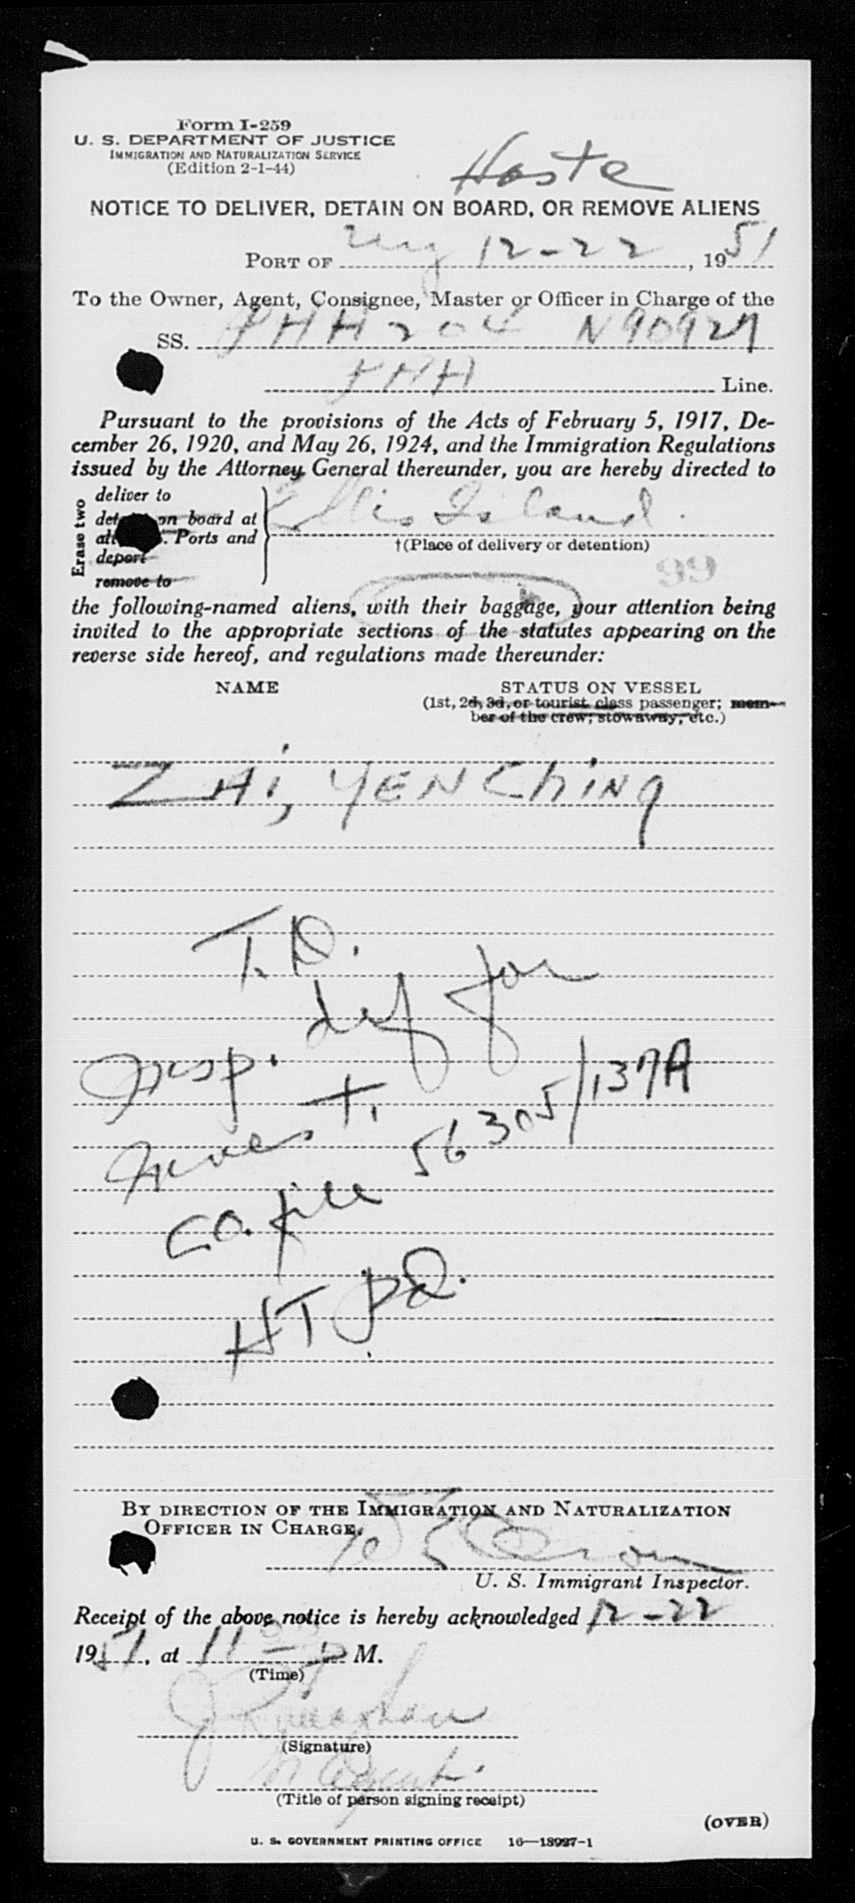 Form I-259
U. S. DEPARTMENT OF JUSTICE
IMMIGRATION AND NATURALIZATION SERVICE
(Edition 2-1-44)
NOTICE TO DELIVER, DETAIN ON BOARD, OR REMOVE ALIENS
PORT OF 12-22, 1951
To the Owner, Agent, Consignee, Master or Officer in Charge of the
SS. 204 N90927
Line.
Pursuant to the provisions of the Acts of February 5, 1917, De-
cember 26, 1920, and May 26, 1924, and the Immigration Regulations
issued by the Attorney General thereunder, you are hereby directed to
Erase two
deliver to
on board at
Ports and
deport
remove to
Ellis Island.
†(Place of delivery or detention)
99
the following-named aliens, with their baggage, your attention being
invited to the appropriate sections of the statutes appearing on the
reverse side hereof, and regulations made thereunder:
NAME STATUS ON VESSEL
(1st, 2d, 3d, or tourist class passenger; mem-
ber of the crew; stowaway, etc.)
ZHI, YENCHING
T.D.
def for
insp.
invest.
CO. file 56305/137A
HT pd.
BY DIRECTION OF THE IMMIGRATION AND NATURALIZATION
OFFICER IN CHARGE,
U. S. Immigrant Inspector.
Receipt of the above notice is hereby acknowledged 12-22
1951, at 11 P M.
(Time)
(Signature)
(Title of person signing receipt)
(OVER)
U. S. GOVERNMENT PRINTING OFFICE 16—18927-1